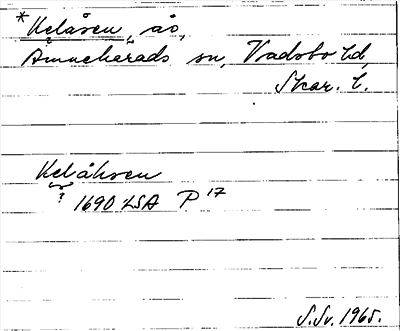 * Kelåsen, å,
Amneherads sn, Vadsbo hd,
Skar. l.
Kelåhsen
?
1690 LSA P 17
S.Sv. 1965.